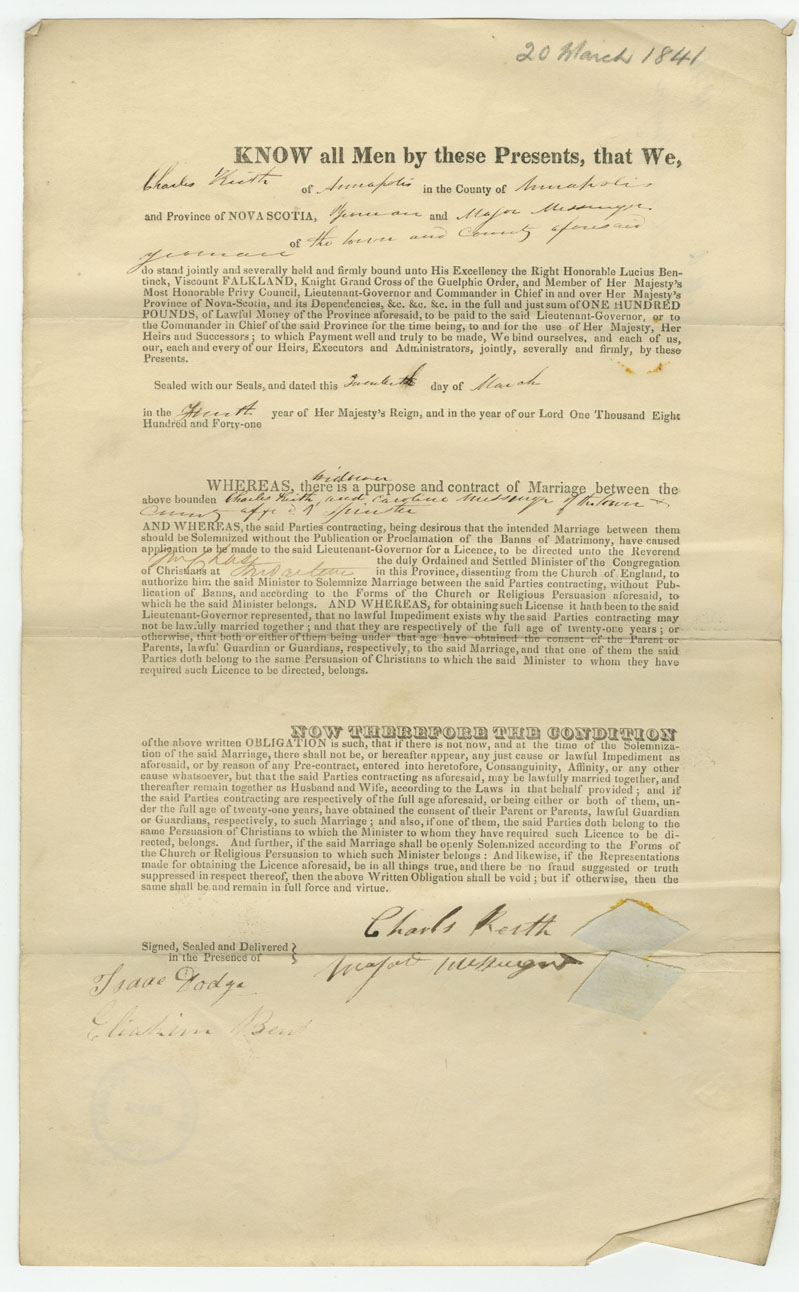 20 March 1841
KNOW all Men by these Presents, that We,
Charles Keith of Annapolis in the County of Annapolis
and Province of NOVA SCOTIA, Yeoman and Major Messenger
of the town and County aforesaid
yeoman
do stand jointly and severally held and firmly bound unto His Excellency the Right Honorable Lucius Ben-
tinck, Viscount FALKLAND, Knight Grand Cross of the Guelphic Order, and Member of Her Majesty's
Most Honorable Privy Council, Lieutenant-Governor and Commander in Chief in and over Her Majesty's
Province of Nova-Scotia, and its Dependencies, &c. &c. &c. in the full and just sum of ONE HUNDRED
POUNDS, of Lawful Money of the Province aforesaid, to be paid to the said Lieutenant-Governor, or to
the Commander in Chief of the said Province for the time being, to and for the use of Her Majesty, Her
Heirs and Successors; to which Payment well and truly to be made, We bind ourselves, and each of us,
our, each and every of our Heirs, Executors and Administrators, jointly, severally and firmly, by these
Presents.
Sealed with our Seals, and dated this Twentieth day of March
in the Fourth year of Her Majesty's Reign, and in the year of our Lord One Thousand Eight
Hundred and Forty-one
widower
WHEREAS, there is a purpose and contract of Marriage between the
above bounden Charles Keith, and Caroline Messenger of the town &
County affd Spinster
AND WHEREAS, the said Parties contracting, being desirous that the intended Marriage between them
should be Solemnized without the Publication or Proclamation of the Banns of Matrimony, have caused
application to be made to the said Lieutenant-Governor for a Licence, to be directed unto the Reverend
Chase the duly Ordained and Settled Minister of the Congregation
of Christians at in this Province, dissenting from the Church of England, to
authorize him the said Minister to Solemnize Marriage between the said Parties contracting, without Pub-
lication of Banns, and according to the Forms of the Church or Religious Persuasion aforesaid, to
which he the said Minister belongs. AND WHEREAS, for obtaining such License it hath been to the said
Lieutenant-Governor represented, that no lawful Impediment exists why the said Parties contracting may
not be lawfully married together; and that they are respectively of the full age of twenty-one years; or
otherwise, that both or either of them being under that age have obtained the consent of the Parent or
Parents, lawful Guardian or Guardians, respectively, to the said Marriage, and that one of them the said
Parties doth belong to the same Persuasion of Christians to which the said Minister to whom they have
required such Licence to be directed, belongs.
NOW THEREFORE THE CONDITION
of the above written OBLIGATION is such, that if there is not now, and at the time of the Solemniza-
tion of the said Marriage, there shall not be, or hereafter appear, any just cause or lawful Impediment as
aforesaid, or by reason of any Pre-contract, entered into heretofore, Consanguinity, Affinity, or any other
cause whatsoever, but that the said Parties contracting as aforesaid, may be lawfully married together, and
thereafter remain together as Husband and Wife, according to the Laws in that behalf provided; and if
the said Parties contracting are respectively of the full age aforesaid, or being either or both of them, un-
der the full age of twenty-one years, have obtained the consent of their Parent or Parents, lawful Guardian
or Guardians, respectively, to such Marriage; and also, if one of them, the said Parties doth belong to the
same Persuasion of Christians to which the Minister to whom they have required such Licence to be di-
rected, belongs. And further, if the said Marriage shall be openly Solemnized according to the Forms of
the Church or Religious Persuasion to which such Minister belongs: And likewise, if the Representations
made for obtaining the Licence aforesaid, be in all things true, and there be no fraud suggested or truth
suppressed in respect thereof, then the above Written Obligation shall be void; but if otherwise, then the
same shall be and remain in full force and virtue.
Charls Keith
Signed, Sealed and Delivered
in the Presence of
Major Messenger
Isaac Dodge
Eliakim Bent